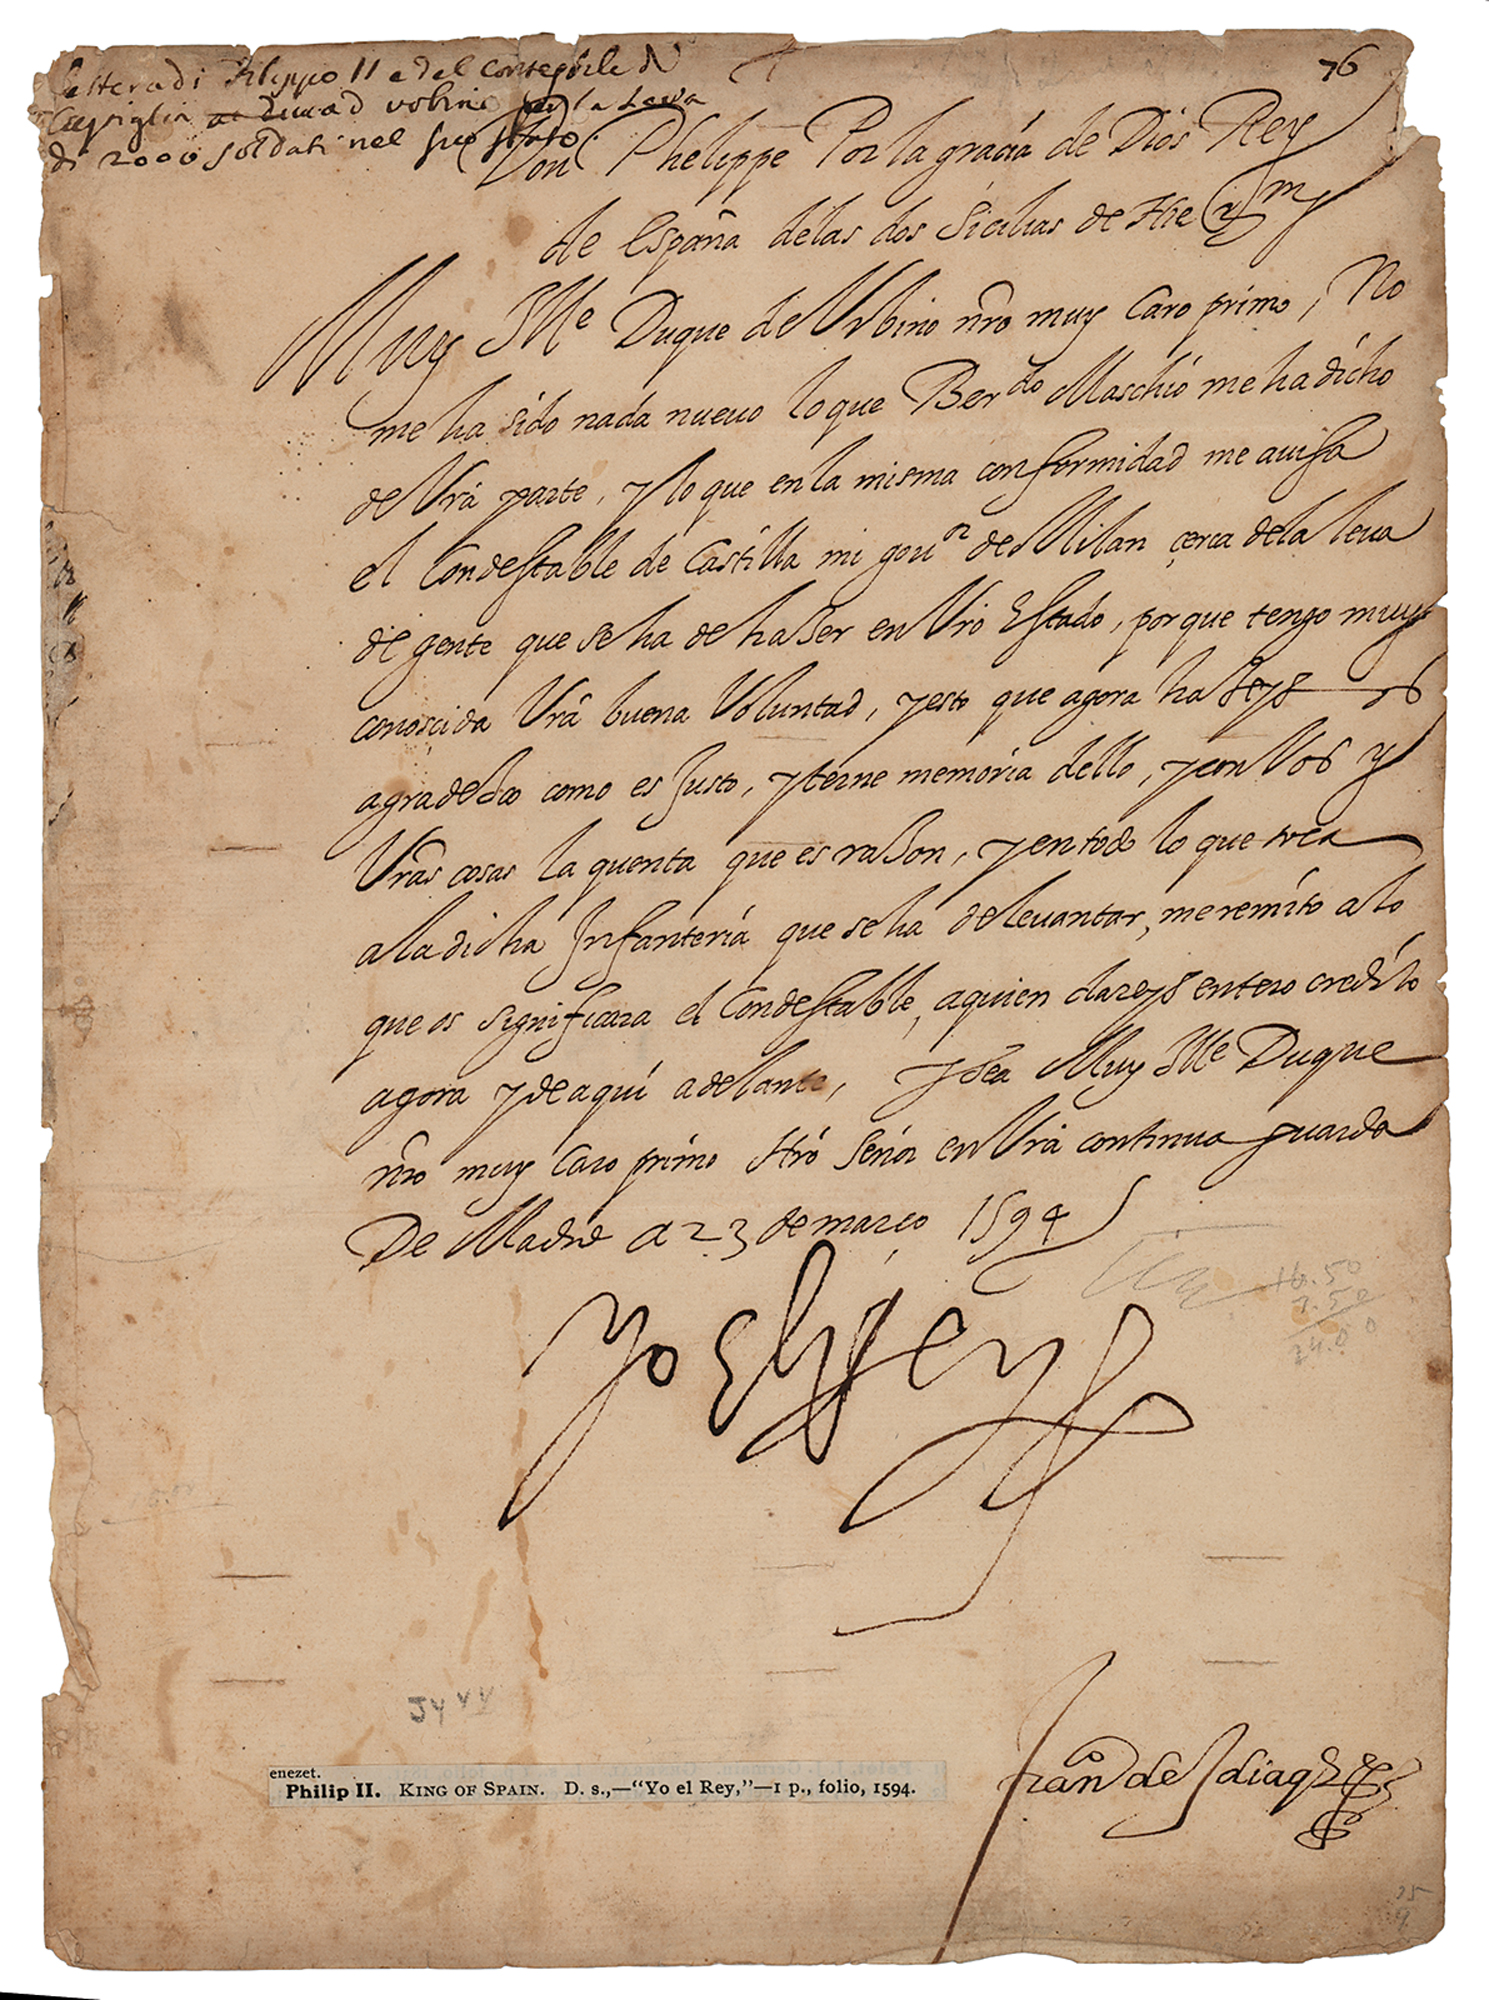 lettera di Filippo II e del Contestabile di
Castiglia al Duca d'Urbino per la Leva
di 2000 soldati nel suo stato.
76
Don Phelippe Por la gracia de Dios Rey
de españa delas dos Sicilias de Hier.m
Muy Ille Duque de Urbino nro muy Caro primo, No
me ha sido nada nueuo lo que Berdo Maschio me ha dicho
de Vra parte, y lo que en la misma conformidad me auisa
el Condestable de Castilla mi gouor de Milan çerca dela leua
de gente que se ha de hazer en Vro Estado, porque tengo muy
conoscida Vra buena Voluntad, y esto que agora hazeys os
agradezco como es Justo, y terne memoria dello, y con Vos y
Vras cosas la quenta que es razon, y en todo lo que toca
ala dicha Infanteria que se ha de leuantar, me remito a lo
que os significara el Condestable, a quien dareys entero credito
agora y de aqui adelante, y sea Muy Ille Duque
nro muy Caro primo Nro Señor en Vra continua guarda
De Madrid a 23 de março 1594
Yo el Rey
16.50
7.50
24.00
enezet.
Philip II. KING OF SPAIN. D. s.,—"Yo el Rey,"—1 p., folio, 1594.
Franco de Idiaquez